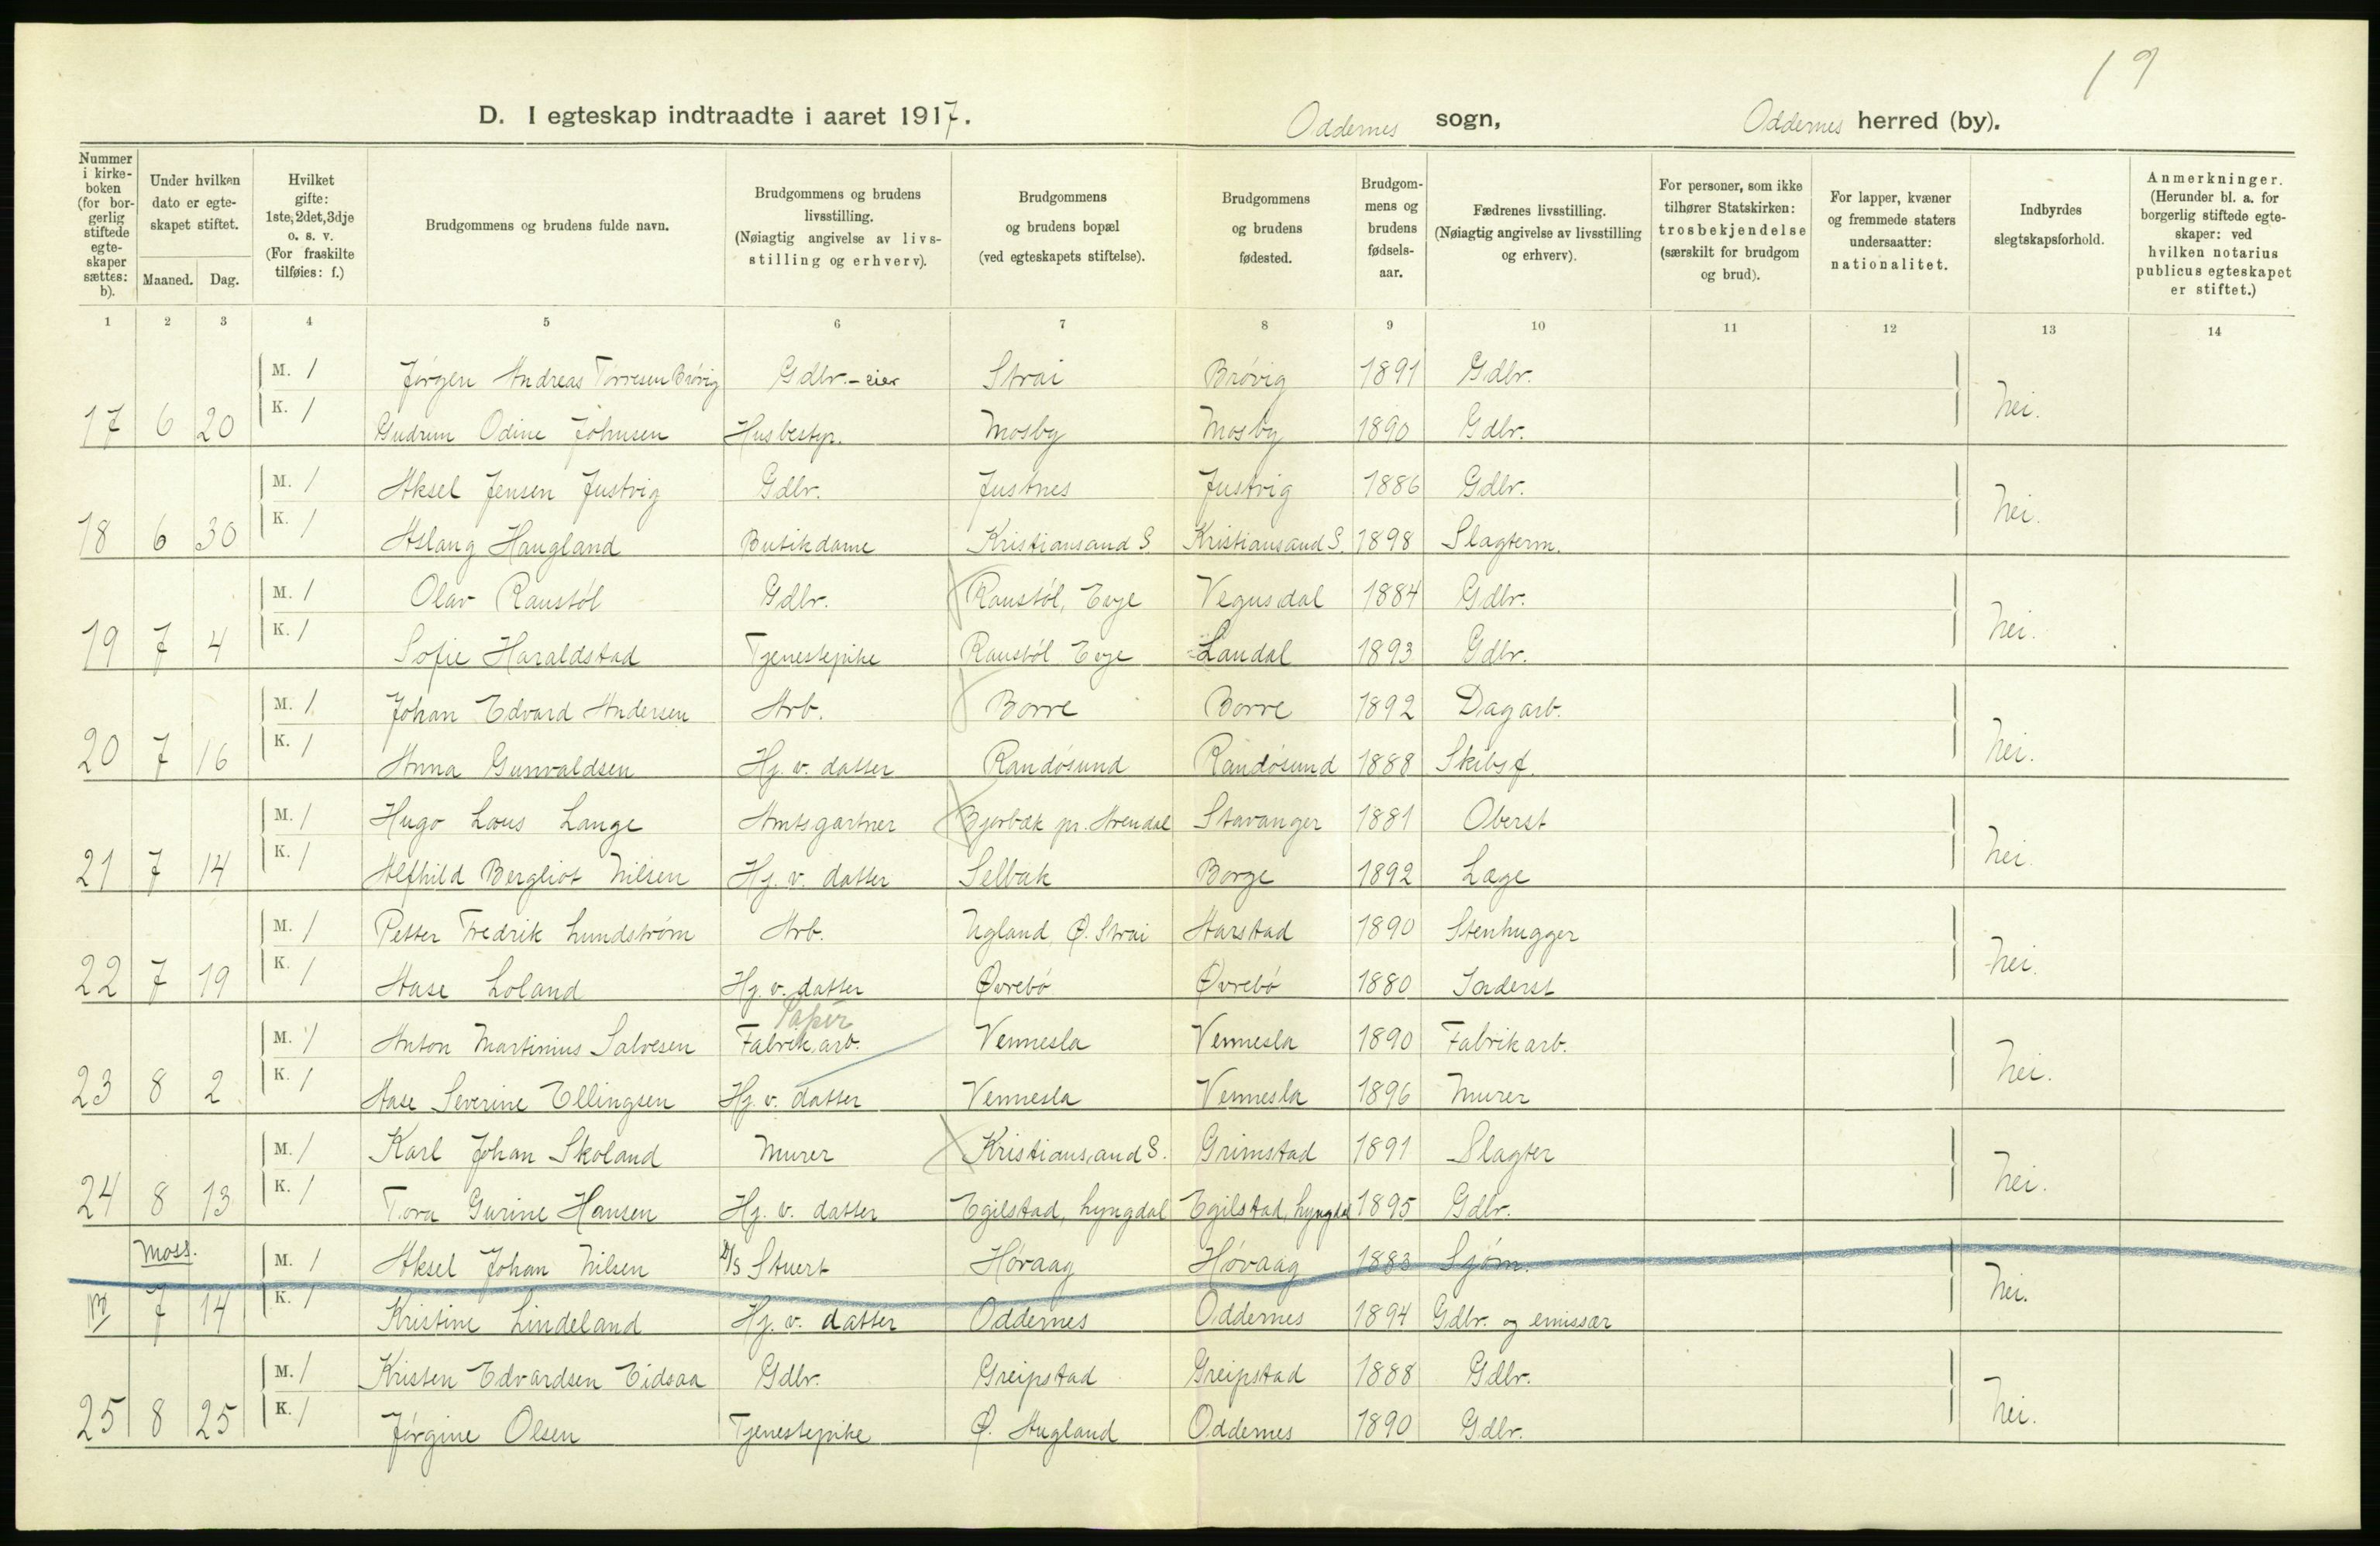 19
D. I egteskap indtraadte i aaret 1917. Oddernes sogn, Oddernes herred (by).
Nummer i kirke-boken (for bor-gerlig stiftede egte-skaper sættes: b).
Under hvilken dato er egte-skapet stiftet.
Maaned. Dag.
Hvilket gifte: 1ste, 2det, 3dje o. s. v. (For fraskilte tilføies: f.)
Brudgommens og brudens fulde navn.
Brudgommens og brudens livsstilling. (Nøiagtig angivelse av livs-stilling og erhverv).
Brudgommens og brudens bopæl (ved egteskapets stiftelse).
Brudgommens og brudens fødested.
Brudgom-mens og brudens fødsels-aar.
Fædrenes livsstilling. (Nøiagtig angivelse av livsstilling og erhverv).
For personer, som ikke tilhører Statskirken: trosbekjendelse (særskilt for brudgom og brud).
For lapper, kvæner og fremmede staters undersaatter: nationalitet.
Indbyrdes slegtskapsforhold.
Anmerkninger. (Herunder bl. a. for borgerlig stiftede egte-skaper: ved hvilken notarius publicus egteskapet er stiftet.)
1 2 3 4 5 6 7 8 9 10 11 12 13 14
M. 1 Jørgen Andreas Torresen Brøvig Gdbr.-eier Strai Brøvig 1891 Gdbr.
17 6 20 K. 1 Gudrun Odine Johnsen Husbestyr. Mosby Mosby 1890 Gdbr. Nei.
M. 1 Aksel Jensen Justvig Gdbr. Justnes Justvig 1886 Gdbr.
18 6 30 K. 1 Aslaug Haugland Butikdame Kristiansand S. Kristiansand S. 1898 Slagterm. Nei.
M. 1 Olav Raustøl Gdbr. Raustøl, Evje Vegusdal 1884 Gdbr.
19 7 4 K. 1 Sofie Haraldstad Tjenestepike Raustøl Evje Laudal 1893 Gdbr. Nei.
M. 1 Johan Edvard Andersen Arb. Borre Borre 1892 Dagarb.
20 7 16 K. 1 Anna Gunvaldsen Hj. v. datter Randøsund Randøsund 1888 Skibsf. Nei.
M. 1 Hugo Lous Lange Amtsgartner Bjorbæk pr. Arendal Stavanger 1881 Oberst
21 7 14 K. 1 Alfhild Bergliot Nilsen Hj. v. datter Selbak Borge 1892 Læge Nei.
M. 1 Petter Fredrik Lundstrøm Arb. Ugland, Ø. Strai Harstad 1890 Stenhugger
22 7 19 K. 1 Aase Loland Hj. v. datter Øvrebø Øvrebø 1880 Inderst Nei.
Papir
M. 1 Anton Martinius Salvesen Fabrikarb. Vennesla Vennesla 1890 Fabrikarb.
23 8 2 K. 1 Aase Severine Ellingsen Hj. v. datter Vennesla Vennesla 1896 Murer Nei.
M. 1 Karl Johan Skoland Murer Kristiansand S. Grimstad 1891 Slagter
24 8 13 K. 1 Tora Gurine Hansen Hj. v. datter Egilstad, Lyngdal Egilstad, Lyngdal 1895 Gdbr. Nei.
Moss. M. 1 Aksel Johan Nilsen D/S Stuert Høvaag Høvaag 1883 Sjøm.
7 14 K. 1 Kristine Lindeland Hj. v. datter Oddernes Oddernes 1894 Gdbr. og emissær Nei.
M. 1 Kristen Edvardsen Eidsaa Gdbr. Greipstad Greipstad 1888 Gdbr.
25 8 25 K. 1 Jørgine Olsen Tjenestepike Ø. Augland Oddernes 1890 Gdbr. Nei.